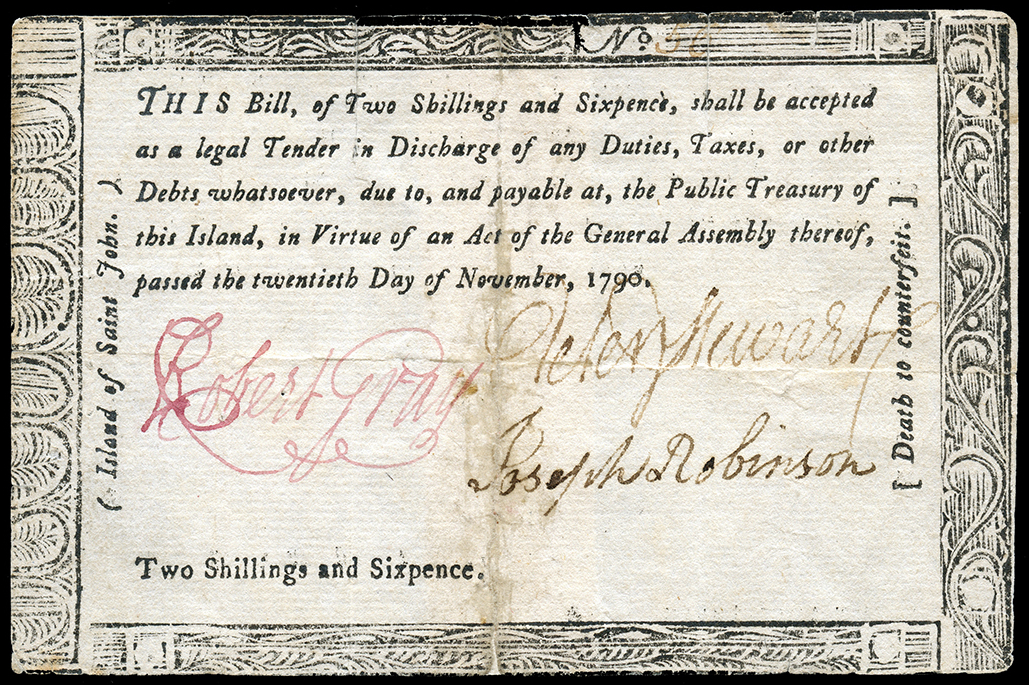 No. 56
THIS Bill, of Two Shillings and Sixpence, shall be accepted
as a legal Tender in Discharge of any Duties, Taxes, or other
Debts whatsoever, due to, and payable at, the Public Treasury of
this Island, in Virtue of an Act of the General Assembly thereof,
passed the twentieth Day of November, 1790.
( Island of Saint John. )
[ Death to counterfeit. ]
Robert Gray
Peter Stewart
Joseph Robinson
Two Shillings and Sixpence.